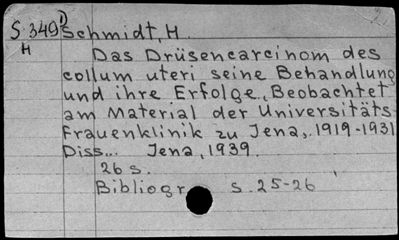 S. 349 1) Schmidt, H.
H
Das Drüsencarcinom des
collum uteri seine Behandlung
und ihre Erfolge, Beobachtet
am Material der Universitäts
Frauenklinik zu Jena, 1919-1931
Diss... Jena, 1939.
26 s.
Bibliogr s. 25-26